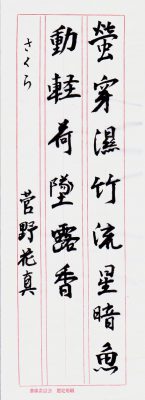 螢穿濕竹流星暗魚
動軽荷墜露香
さくら
菅野花真